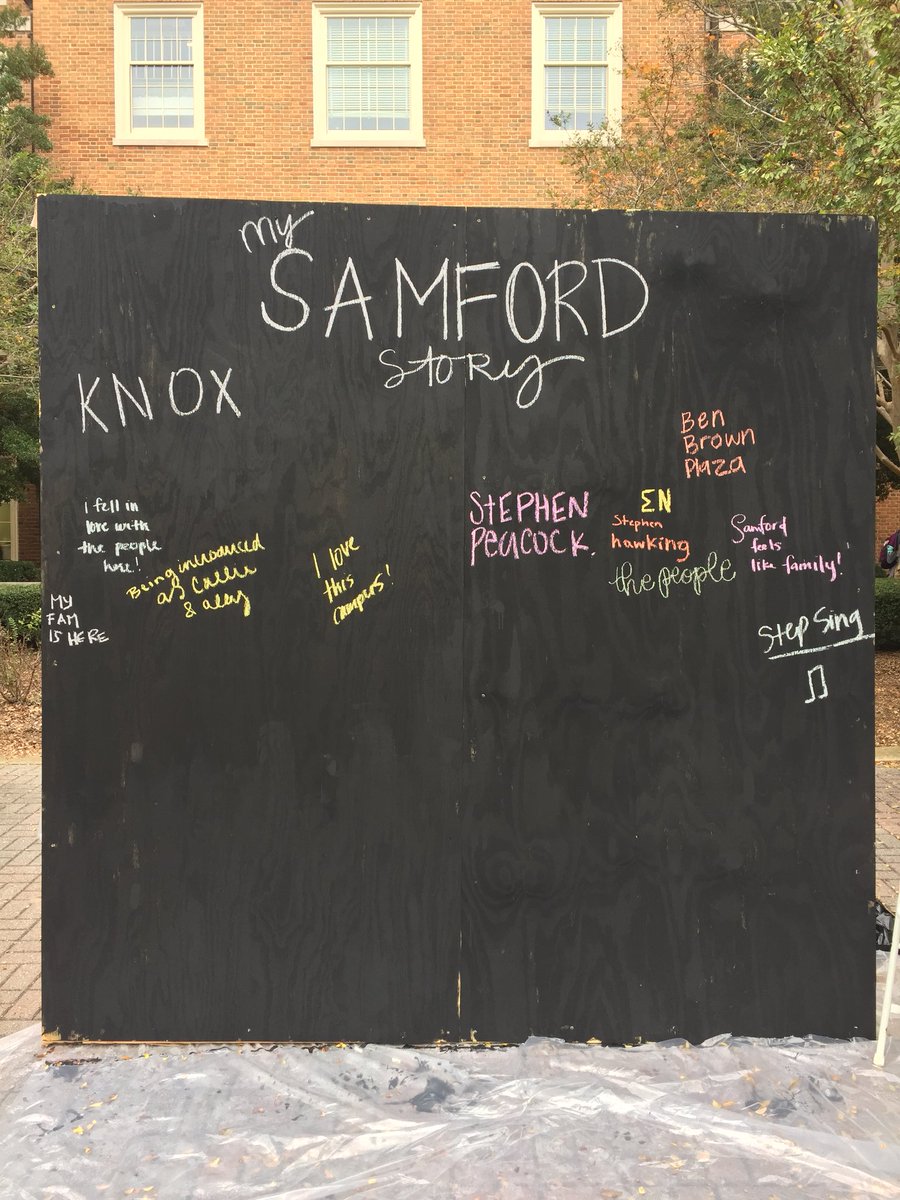 my
SAMFORD
story
KNOX
Ben
Brown
Plaza
I fell in
love with
the people
here!
Being introduced
as
& alley
I love
this
campus!
STEPHEN
PEACOCK.
ΣN
Stephen
hawking
the people
Samford
feels
like family!
MY
FAM
IS HERE
Step Sing
♫